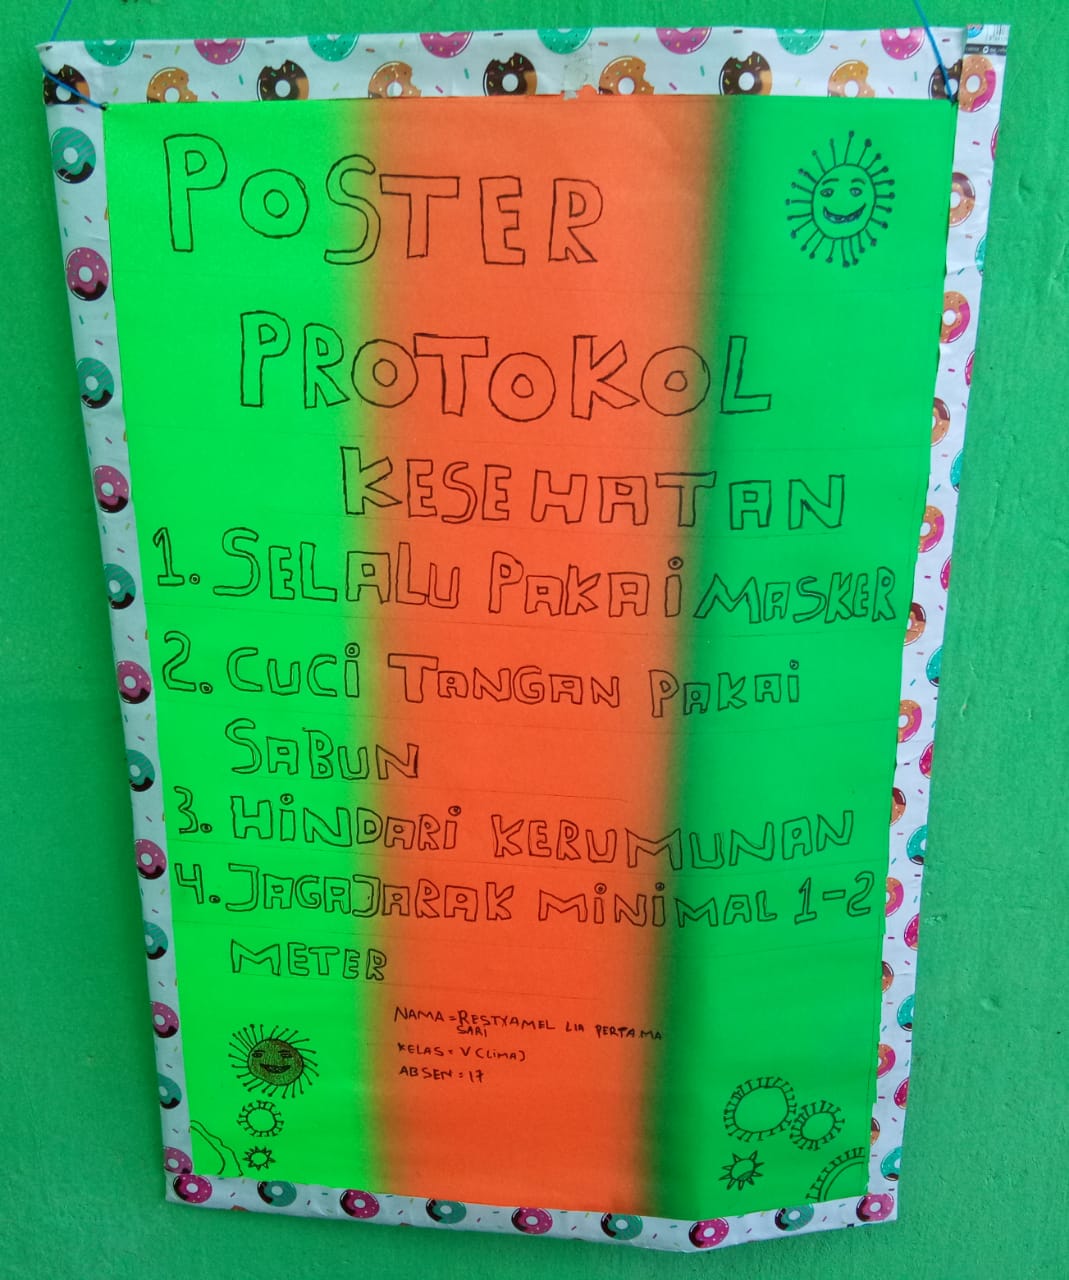 POSTER
PROTOKOL
KESEHATAN
1. SELALU PAKAi MASKER
2. CUCi TANGAN PAKAi
SABUN
3. HiNDARi KERUMUNAN
4. JAGA JARAK MiNiMAL 1-2
METER
NAMA = RESTYAMEL LIA PERTAMA
SARI
KELAS = V (LiMA)
ABSEN : 17